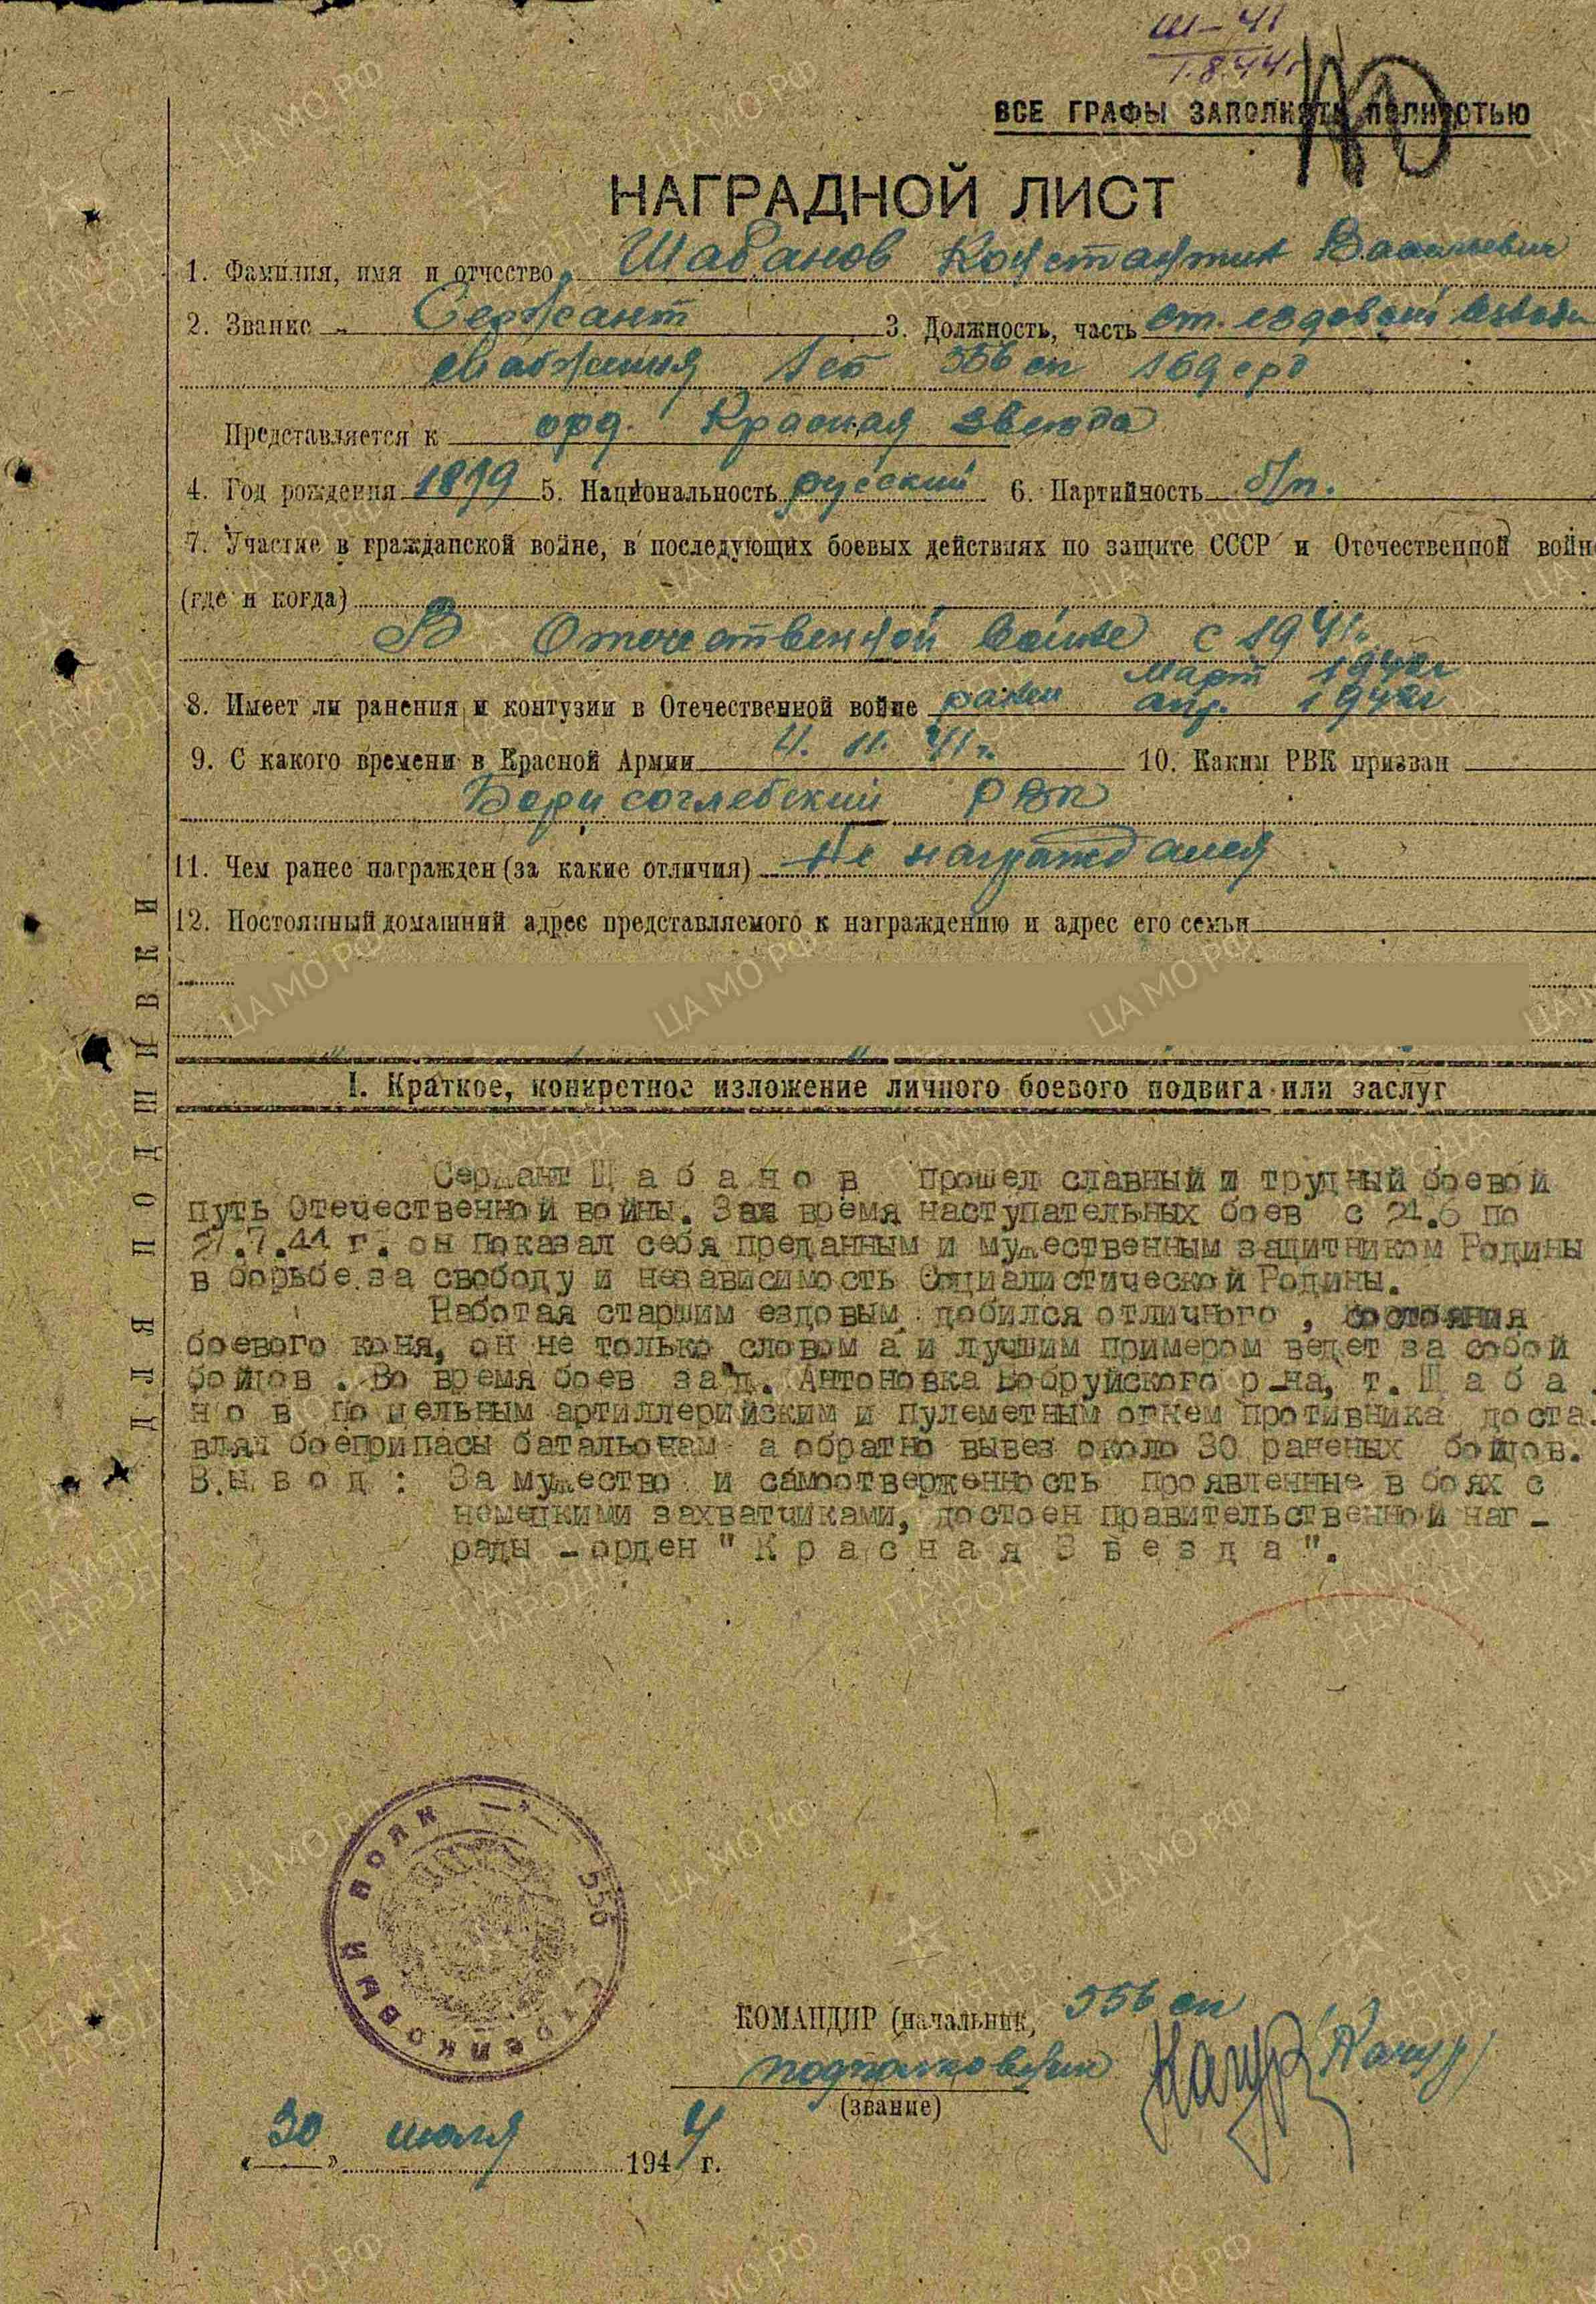 Ш-41
1.8.44г
ВСЕ ГРАФЫ ЗАПОЛНЯТЬ ПОЛНОСТЬЮ
НАГРАДНОЙ ЛИСТ
1. Фамилия, имя и отчество Шабанов Константин Васильевич
2. Звание Сержант 3. Должность, часть ст. ездовой взвода
снабжения 1сб 556 сп 169 срд
Представляется к орд. Красная звезда
4. Год рождения 1899 5. Национальность русский 6. Партийность б/п.
7. Участие в гражданской войне, в последующих боевых действиях по защите СССР и Отечественной войн
(где и когда)
В Отечественной войне с 1941г.
март 1942г
8. Имеет ли ранения и контузии в Отечественной войне ранен апр. 1942г
9. С какого времени в Красной Армии 4. 11. 41г. 10. Каким РВК призван
Борисоглебский РВК
11. Чем ранее награжден (за какие отличия) Не награждался
12. Постоянный домашний адрес представляемого к награждению и адрес его семьи
I. Краткое, конкретное изложение личного боевого подвига или заслуг
Сержант Ш а б а н о в прошел славный и трудный боевой
путь Отечественной войны. За время наступательных боев с 24.6 по
27.7.44 г. он показал себя преданным и мужественным защитником Родины
в борьбе за свободу и независимость Социалистической Родины.
Работая старшим ездовым добился отличного , состояния
боевого коня, он не только словом а и лучшим примером ведет за собой
бойцов . Во время боев за д. Антоновка Бобруйского р-на, т. Ш а б а
н о в под сильным артиллерийским и пулеметным огнем противника доста
влял боеприпасы батальонам а обратно вывез около 30 раненых бойцов.
В ы в о д : За мужество и самоотверженность проявленные в боях с
немецкими захватчиками, достоен правительственной наг-
рады -орден "К р а с н а я З в е з д а".
556 СТРЕЛКОВЫЙ ПОЛК
КОМАНДИР (начальник, 556 сп
подполковник
(звание)
«30» июля 1944 г.
ДЛЯ ПОДШИВКИ
ЦА МО РФ
ПАМЯТЬ НАРОДА